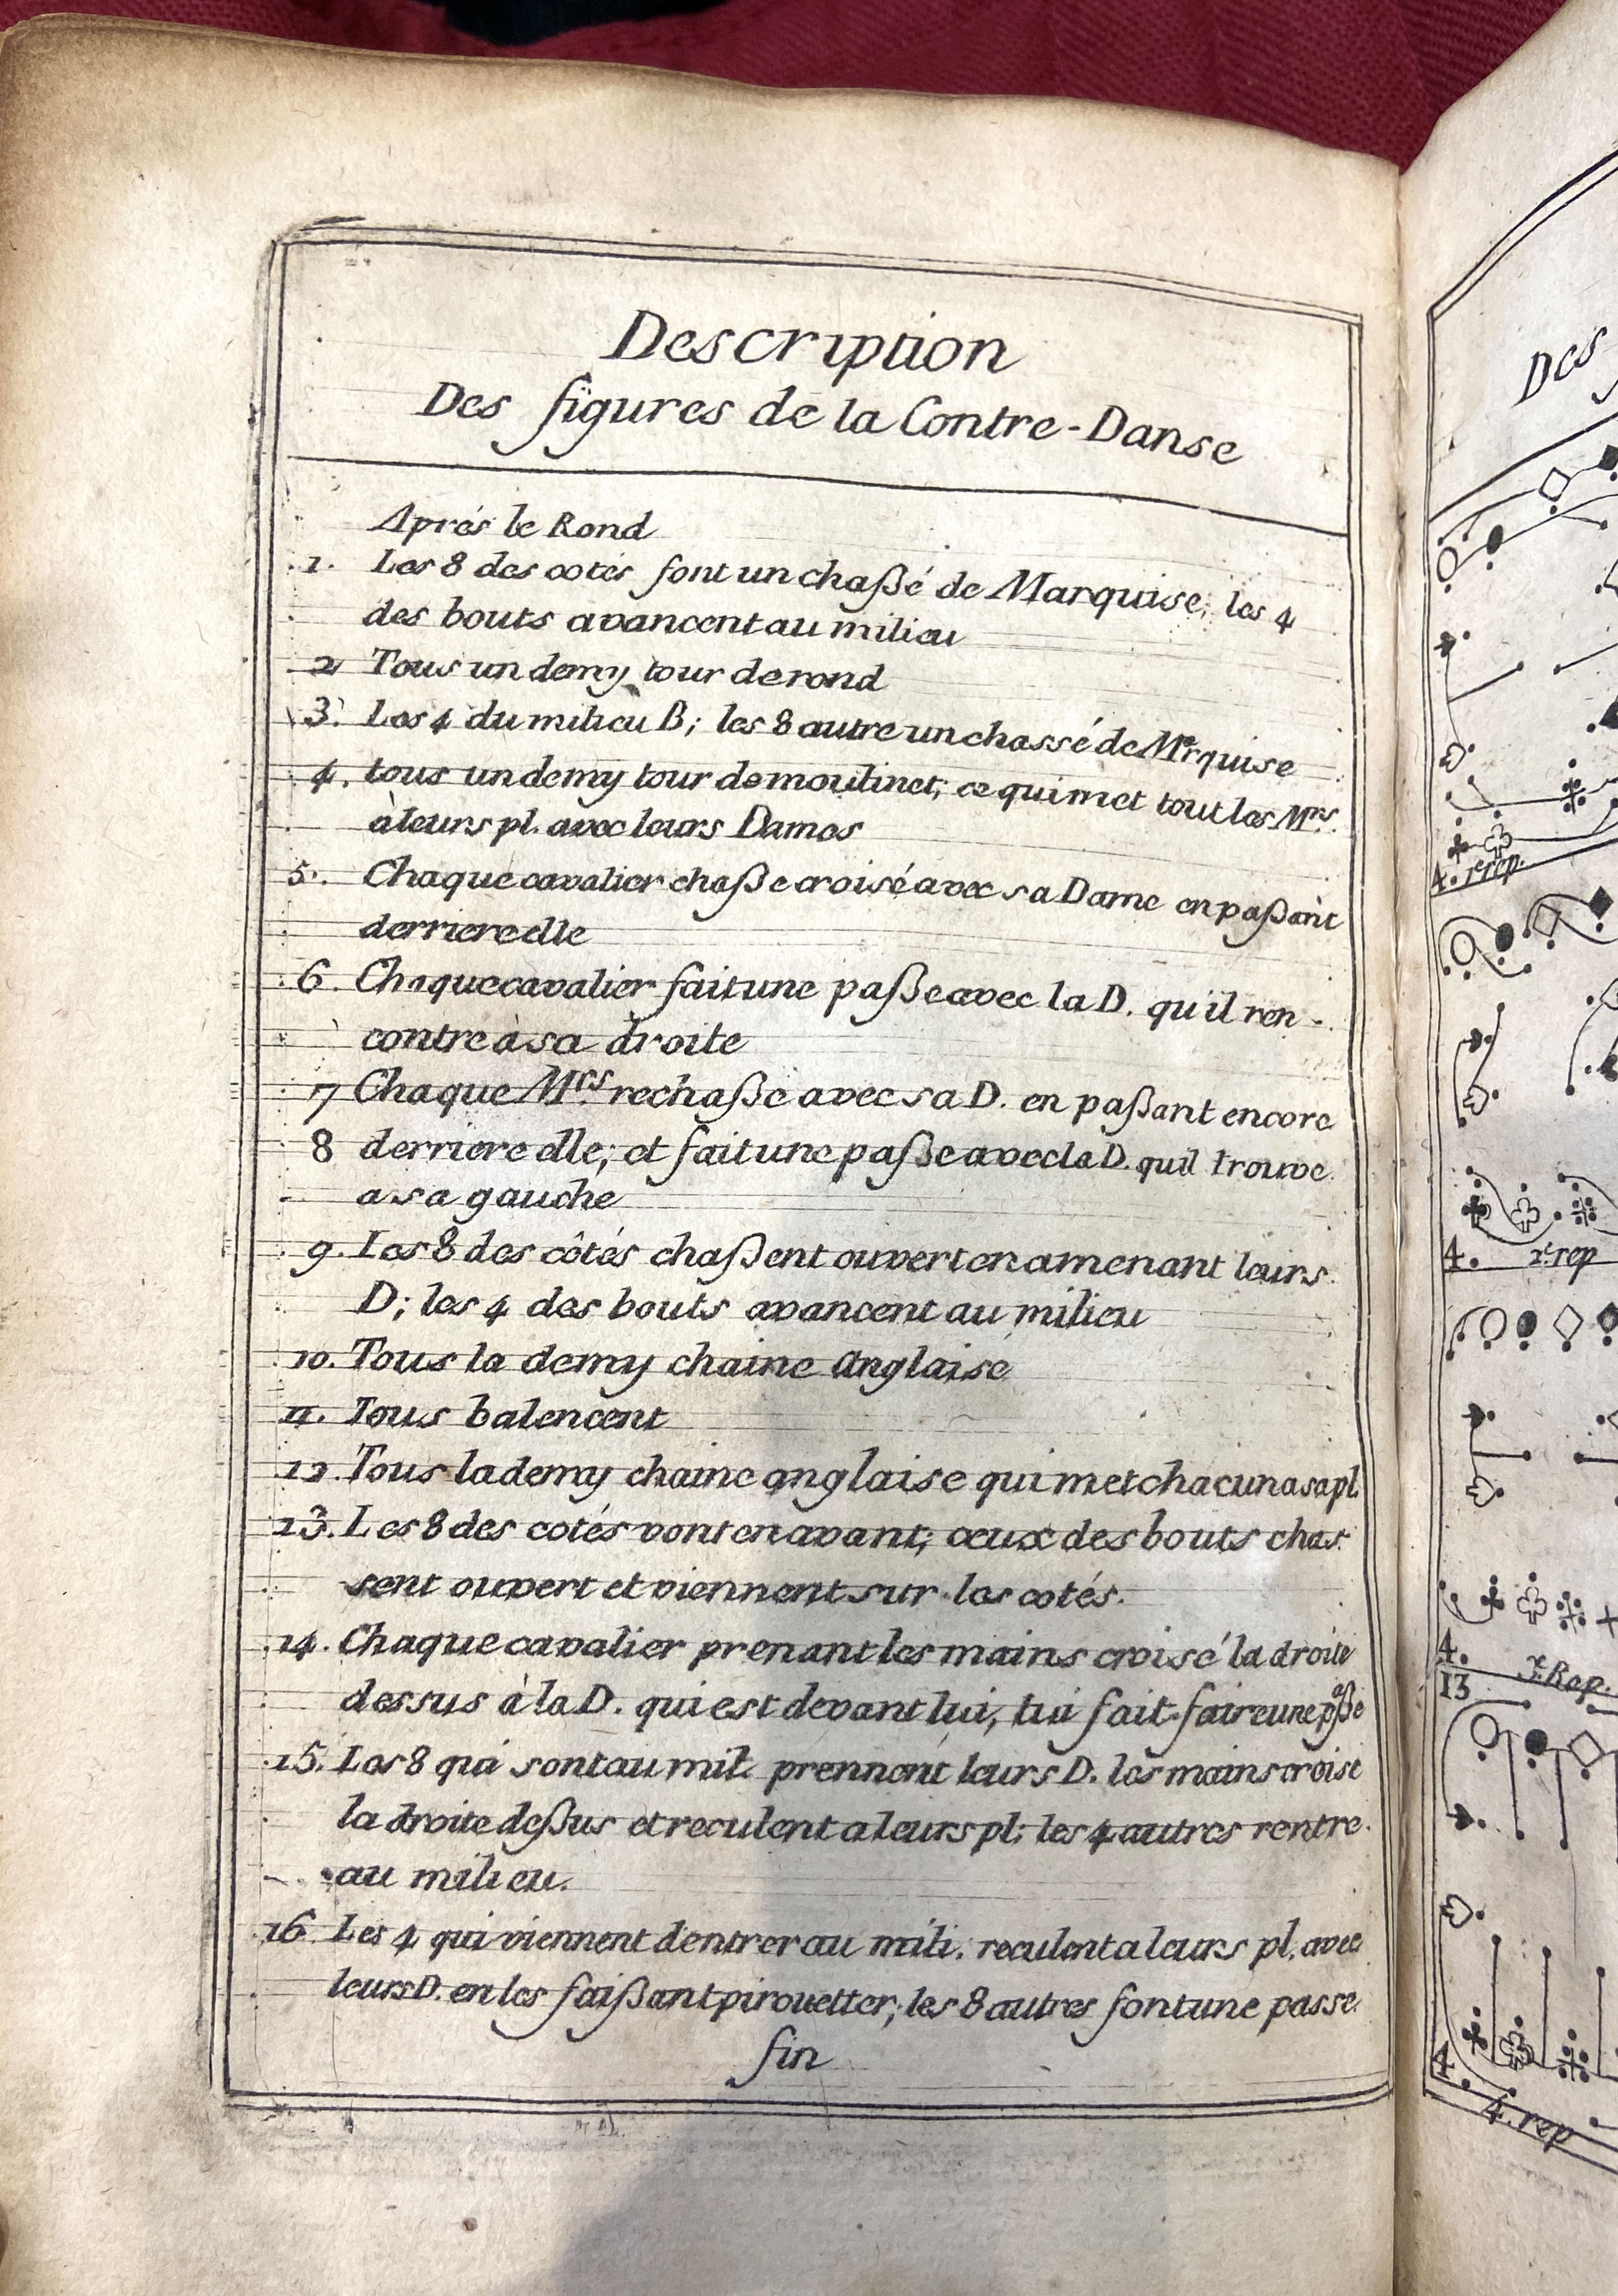 Description
Des figures de la Contre-Danse
Aprés le Rond
1. Les 8 des cotés font un chaßé de Marquise; les 4
des bouts avancent au milieu
2 Tous un demy tour de rond
3. Les 4 du milieu B; les 8 autre un chassé de Marquise
4. tous un demy tour de moulinet; ce qui met tout les Mrs.
à leurs pl. avec leurs Dames
5. Chaque cavalier chaße croisé avec sa Dame en paßant
derriere elle
6. Chaque cavalier fait une paße avec la D. qu'il ren-
contre à sa droite
7 Chaque Mrs rechaße avec sa D. en paßant encore
8 derriere elle; et fait une paße avec la D. quil trouve
a sa gauche
9. Les 8 des côtés chaßent ouvert en amenant leurs
D; les 4 des bouts avancent au milieu
10. Tous la demy chaine Anglaise
11. Tous balencent
12. Tous la demy chaine anglaise qui met chacun a sa pl.
13. Les 8 des cotés vont en avant; ceux des bouts chas
sent ouvert et viennent sur les cotés.
14. Chaque cavalier prenant les mains croisé la droite
dessus à la D. qui est devant lui, lui fait faire une paße
15. Les 8 qui sont au mil. prennent leurs D. les mains croisé
la droite deßus et reculent a leurs pl; les 4 autres rentre
au milieu.
16 Les 4 qui viennent d'entrer au mili. reculent a leurs pl. avec
leurs D. en les faißant pirouetter; les 8 autres font une passe
fin
Des
4. 1r rep.
4. 2e rep
4. 3e Rep.
13
4. 4. rep